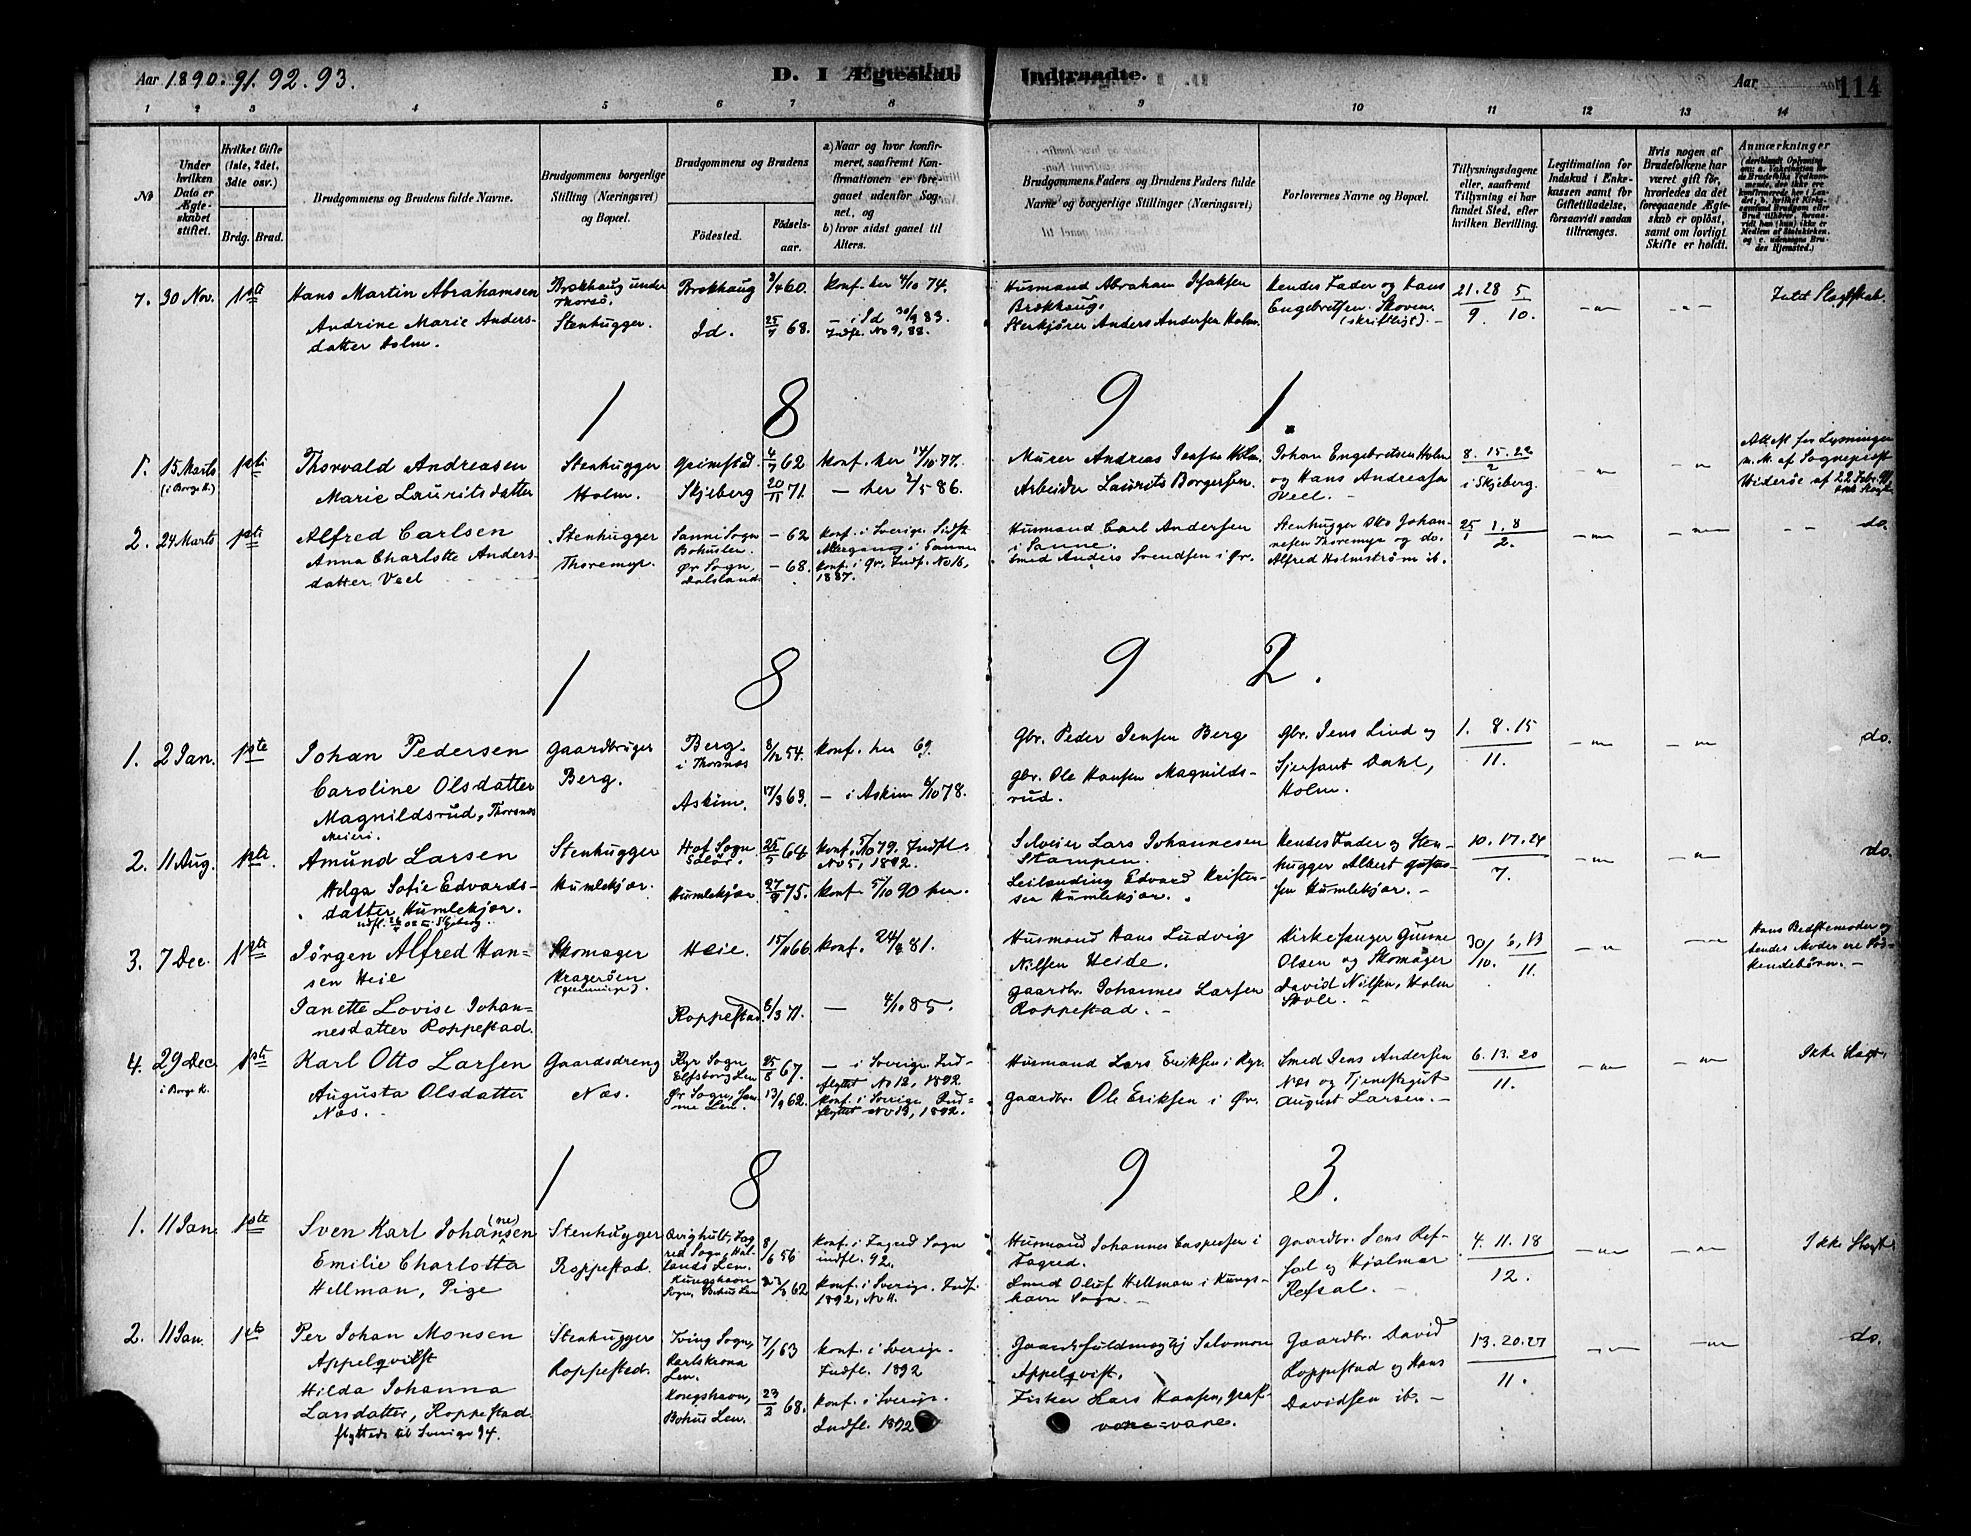 Aar 1890. 91. 92. 93.
D. I Ægteskab Indtraadte.
Aar
114
1 2 3 4 5 6 7 8 9 10 11 12 13 14
No
Under hvilken Data er Ægteskabet stiftet.
Hvilket Gifte (1ste, 2det, 3die osv.)
Brdg. Brud.
Brudgommens og Brudens fulde Navne.
Brudgommens borgerlige Stilling (Næringsvei) og Bopæl.
Brudgommens og Brudens
Fødested.
Fødselsaar.
a) Naar og hvor konfirmeret, saafremt Konfirmationen er foregaaet udenfor Sognet, og
b) hvor sidst gaaet til Alters.
Brudgommens Faders og Brudens Faders fulde Navne og borgerlige Stillinger (Næringsvei)
Forlovernes Navne og Bopæl.
Tillysningsdagene eller, saafremt Tillysning ei har fundet Sted, efter hvilken Bevilling.
Legitimation for Indskud i Enkekassen samt for Giftetilladelse, forsaavidt saadan tiltrænges.
Hvis nogen af Brudefolkene har været gift før, hvorledes da det foregaaende Ægteskab er opløst, samt om lovligt Skifte er holdt.
Anmærkninger
7. 30 Nov. 1ste Hans Martin Abrahamsen
Andrine Marie Anders-
datter Holm.
Brokhaug under
Thorsø.
Stenhugger.
Brokhaug 60.
Id. 25/7 68.
Konf. her 4/10 74.
— i Id 30/9 83.
Indfl. No 9, 88.
Husmand Abraham Isaksen
Brokhaug.
Anders Andersen Holm.
Hendes Fader og Hans
Engebretsen Skoven.
(skriftligt). —
21. 28 5
9. 10.
— " — — " — Fuld Slagtskab.
1 8 9 1.
1. 15 Marts 1ste Thorvald Andreasen
(i Borge K.) Marie Lauritsdatter
Stenhugger
Holm.
Grimstad. 4/7 62
Skjeberg 20/11 71.
Konf. her 14/10 77.
— her 2/5 86.
Murer Andreas Holm.
Arbeider Laurits Borgersen.
Johan Engebretsen Holm
og Hans Andreasen
Veel. —
8. 15. 22
2
i Skjeberg.
— " — — " —
Att. for Lysninger
m. M. af Sogneprest
Widerøe af 22 Febr. 91
2. 24 Marts 1ste Alfred Carlsen
Anna Charlotte Anders-
datter Veel
Stenhugger
Thoremyr.
Sanne Sogn
Bohuslen. — 62
Ør Sogn,
Dalsland. — 68.
Konf. i Sverige. Sidste
Altergang i Sanne.
Konf. i Ør. Indf. No 16,
1887.
Husmand Carl Andersen
i Sanne.
Smed Anders Svendsen i Ør.
Stenhugger Otto Johan-
nesen Thoremyr og do.
Alfred Holmström ib.
25/1 1. 8
2.
— " — — " — — — do.
1 8 9 2.
1. 2 Jan. 1ste Johan Pedersen
Caroline Olsdatter
Magnildsrud, Thorsnæs
Meieri.
Gaardbruger
Berg.
Berg.
i Thorsnæs 8/12 54.
Askim. 17/3 63.
Konf. her 69.
— i Askim 6/10 78.
Gbr. Peder Jensen Berg
Gbr. Ole Hansen Magnilds-
rud.
Gbr. Jens Lind og
Sjersant Dahl,
Holm.
1. 8. 15
11.
— " — — " — do.
2. 11 Aug. 1ste Amund Larsen
Helga Sofie Edvards-
datter Humlekjær.
Stenhugger
Humlekjær.
Hof Sogn
Solør. 25/5 64
Humlekjær 27/9 75.
Konf. 5/10 79. Indfl.
No 5, 1892.
Konf. 5/10 90 her.
Selveier Lars Johannesen
Stampen.
Leilænding Edvard Kristen-
sen Humlekjær.
Hendes Fader og Sten-
hugger Albert
Humlekjær. —
10. 17. 24
7.
— " — — " — do.
3. 7 Dec. 1ste Jørgen Alfred Han-
sen Heie
Janette Lovise Johan-
nesdatter Roppestad.
Skomager
Kragerøen
Heie. 15/11 66
Roppestad. 6/3 71.
Konf. 24/4 81.
— 4/10 85.
Husmand Hans Ludvig
Nilsen Heide.
Gaardbr. Johannes Larsen
Roppestad. —
Kirkesanger Gunne
Olsen og Skomager
David Nilsen, Holm
Skole. —
30/10. 6, 13
11.
— " — — " —
Hans Bedstemoder og
hendes Moder ere Sød-
skendebørn. —
4. 29 Dec. 1ste Karl Otto Larsen
i Borge K. Augusta Olsdatter
Næs. —
Gaardsdreng
Næs.
Ryr Sogn
Elfsborg Len 25/8 67.
Ør Sogn, 13/9 62.
— i Sverige. Ind-
flyttet No 12, 1892
Konf. i Sverige. Ind-
flyttet No 13, 1892.
Husmand Lars Eriksen i Ryr.
Gaardbr. Ole Eriksen i Ør.
Smed Jens Andersen
Næs og Tjenestegut
August Larsen. —
6. 13. 20
11.
— " — — " — Ikke Slagt.
1 8 9 3.
1. 11 Jan. 1ste Sven Karl Johansen (ne)
Emilie Charlotta
Hellman, Pige
Stenhugger
Roppestad.
Qvighult, Fag-
red Sogn, Hal-
lands Len. 8/6 56
Kungshavn
Sogn, Bohus Len 62
Konf. i Fagred Sogn
indfl. 92.
Konf. i Sverige. Indf.
1892, No 11.
Husmand Johannes Caspersen i
Fagred.
Smed Oluf Hellman i Kungs-
havn Sogn. —
Gaardbr. Jens Ref-
sal og Hjalmar
Refsal. —
4. 11. 18
12.
— " — — " — Ikke Slagt.
2. 11 Jan. 1ste Per Johan Monsen
Appelqvist
Hilda Johanna
Larsdatter, Roppestad.
flyttede til Sverige 94.
Stenhugger
Roppestad.
Tving Sogn,
Karlskrona
Len. 7/1 63
Kongshavn,
Bohus Len. 23/2 68.
Konf. i Sverige.
Indfl. 1892
Konf. i Sverige.
Indfl. 1892
Gaardsfuldmægtig Salomon
Appelqvist.
Fisker Lars Hansen,
Gaardbr. David
Roppestad og Hans
Davidsen ib. —
13. 20. 27
11.
— " — — " — do.